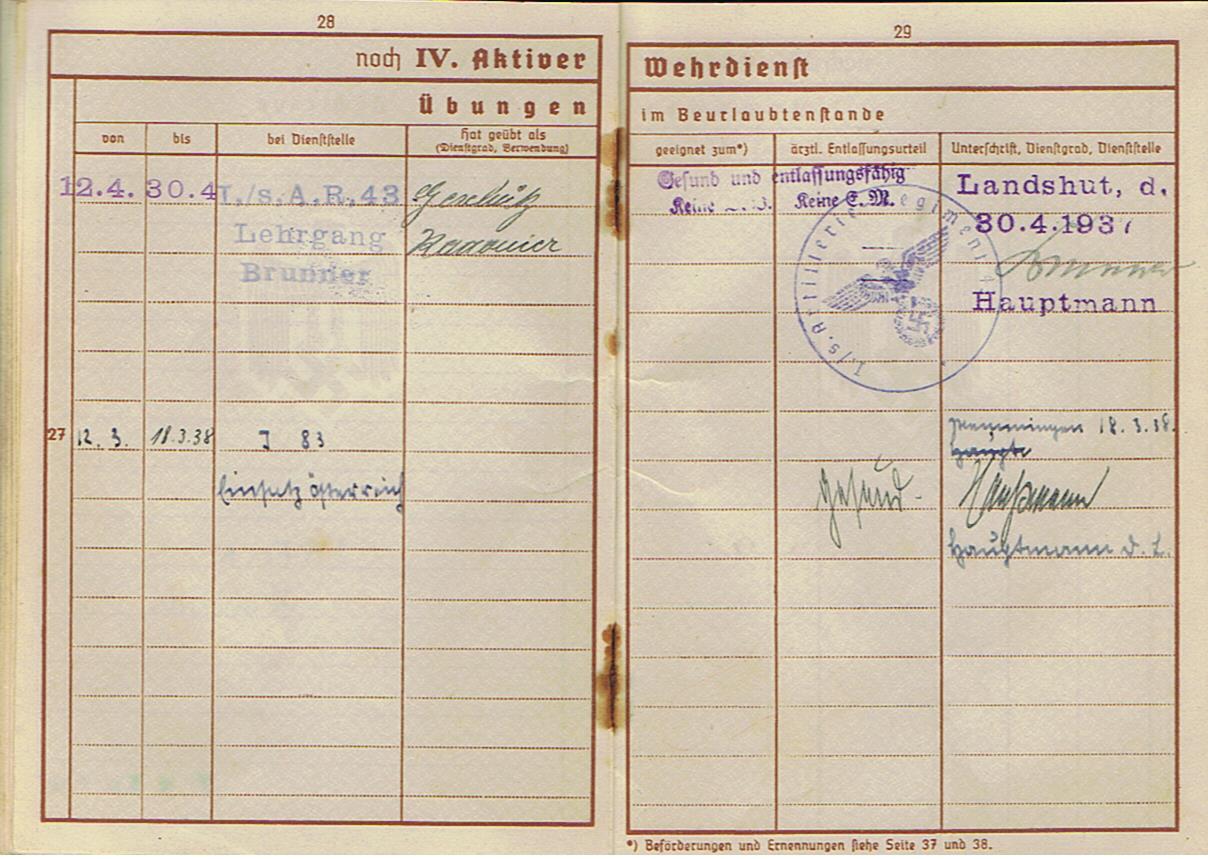 28
noch IV. Aktiver
Übungen
von
bis
bei Dienststelle
hat geübt als
(Dienstgrad, Verwendung)
12.4. 30.4
I./s.A.R.43
Lehrgang
Brunner
Geschütz
Kanonier
27
12. 3. 18.3.38
J 83
Einsatz Österreich
29
Wehrdienst
im Beurlaubtenstande
geeignet zum*)
ärztl. Entlassungsurteil
Unterschrift, Dienstgrad, Dienststelle
Gesund und entlassungsfähig
Keine
Keine E. M.
I./s. Artillerie Regiment
Landshut, d.
30.4.1937
Brunner
Hauptmann
18.3.38.
gesund.
Hauptmann d. L.
*) Beförderungen und Ernennungen siehe Seite 37 und 38.